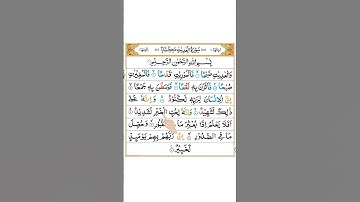 سُورَةُ الْعٰدِيٰتِ مَكِّيَّةٌ
بِسْمِ اللهِ الرَّحْمٰنِ الرَّحِيْمِ
وَالْعٰدِيٰتِ ضَبْحًا فَالْمُوْرِيٰتِ قَدْحًا فَالْمُغِيْرٰتِ
صُبْحًا فَاَثَرْنَ بِهٖ نَقْعًا فَوَسَطْنَ بِهٖ جَمْعًا
اِنَّ الْاِنْسَانَ لِرَبِّهٖ لَكَنُوْدٌ وَاِنَّهٗ عَلٰى
ذٰلِكَ لَشَهِيْدٌ وَاِنَّهٗ لِحُبِّ الْخَيْرِ لَشَدِيْدٌ
اَفَلَا يَعْلَمُ اِذَا بُعْثِرَ مَا الْقُبُوْرِ وَحُصِّلَ
مَا فِي الصُّدُوْرِ اِنَّ رَبَّهُمْ بِهِمْ يَوْمَئِذٍ
لَّخَبِيْرٌ